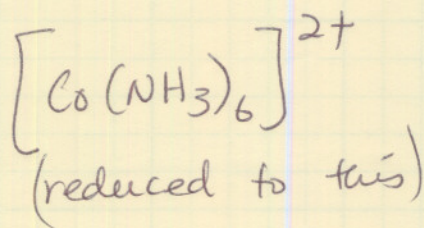 [Co(NH3)6]2+
(reduced to this)